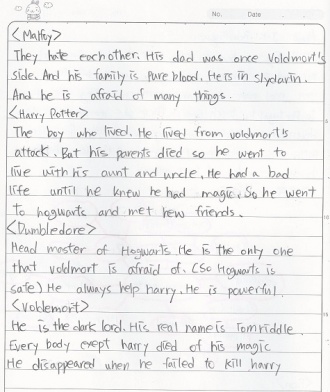 No. Date
<Malfoy>
They hate eachother. His dad was once Voldmort's
side. And his family is pure blood. He is in slydarin.
And he is afraid of many things.
<Harry Potter>
The boy who lived. He lived from voldmort's
attack. But his parents died so he went to
live with his aunt and uncle. He had a bad
life until he knew he had magic. So he went
to hogwarts and met new friends.
<Dumbledore>
Head master of Hogwarts He is the only one
that voldmort is afraid of. (So Hogwarts is
safe) He always help harry. He is powerful.
<Voldemort>
He is the dark lord. His real name is Tomriddle
Every body exept harry died of his magic
He disappeared when he failed to kill harry